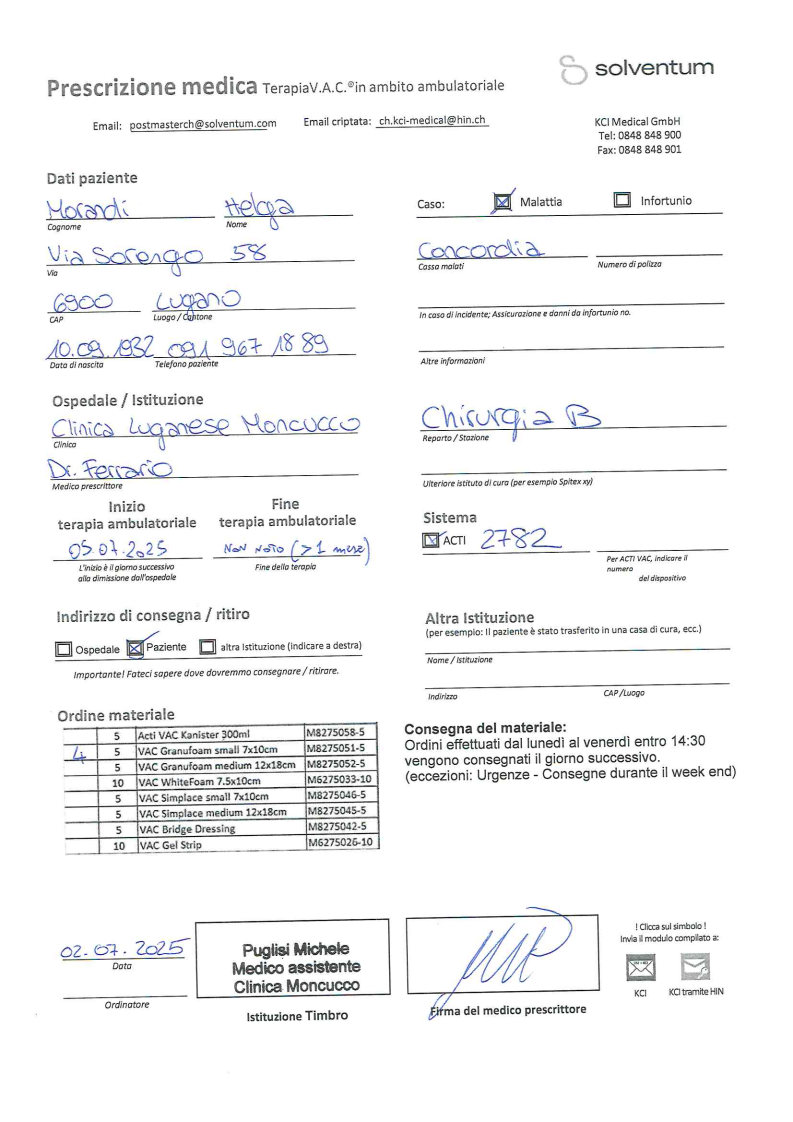 solventum
Prescrizione medica TerapiaV.A.C.®in ambito ambulatoriale
Email: postmasterch@solventum.com Email criptata: ch.kci-medical@hin.ch
KCI Medical GmbH
Tel: 0848 848 900
Fax: 0848 848 901
Dati paziente
Morandi Helga
Cognome Nome
Via Sorengo 58
Via
6900 Lugano
CAP Luogo / Cantone
10.09.1932 091 967 18 89
Data di nascita Telefono paziente
Caso: Malattia Infortunio
Concordia
Cassa malati Numero di polizza
In caso di incidente; Assicurazione e danni da infortunio no.
Altre informazioni
Ospedale / Istituzione
Clinica Luganese Moncucco
Clinica
Dr. Ferrario
Medico prescrittore
Chirurgia B
Reparto / Stazione
Ulteriore istituto di cura (per esempio Spitex xy)
Inizio Fine
terapia ambulatoriale terapia ambulatoriale
05.07.2025 Non noto (>1 mese)
L'inizio è il giorno successivo Fine della terapia
alla dimissione dall'ospedale
Sistema
ACTI 2782
Per ACTI VAC, indicare il
numero
del dispositivo
Indirizzo di consegna / ritiro
Ospedale Paziente altra Istituzione (indicare a destra)
Importante! Fateci sapere dove dovremmo consegnare / ritirare.
Altra Istituzione
(per esempio: Il paziente è stato trasferito in una casa di cura, ecc.)
Nome / Istituzione
Indirizzo CAP /Luogo
Ordine materiale
5 Acti VAC Kanister 300ml M8275058-5
4 5 VAC Granufoam small 7x10cm M8275051-5
5 VAC Granufoam medium 12x18cm M8275052-5
10 VAC WhiteFoam 7.5x10cm M6275033-10
5 VAC Simplace small 7x10cm M8275046-5
5 VAC Simplace medium 12x18cm M8275045-5
5 VAC Bridge Dressing M8275042-5
10 VAC Gel Strip M6275026-10
Consegna del materiale:
Ordini effettuati dal lunedì al venerdì entro 14:30
vengono consegnati il giorno successivo.
(eccezioni: Urgenze - Consegne durante il week end)
02.07.2025
Data
Ordinatore
Puglisi Michele
Medico assistente
Clinica Moncucco
Istituzione Timbro
Firma del medico prescrittore
! Clicca sul simbolo !
Invia il modulo compilato a:
KCI KCI tramite HIN